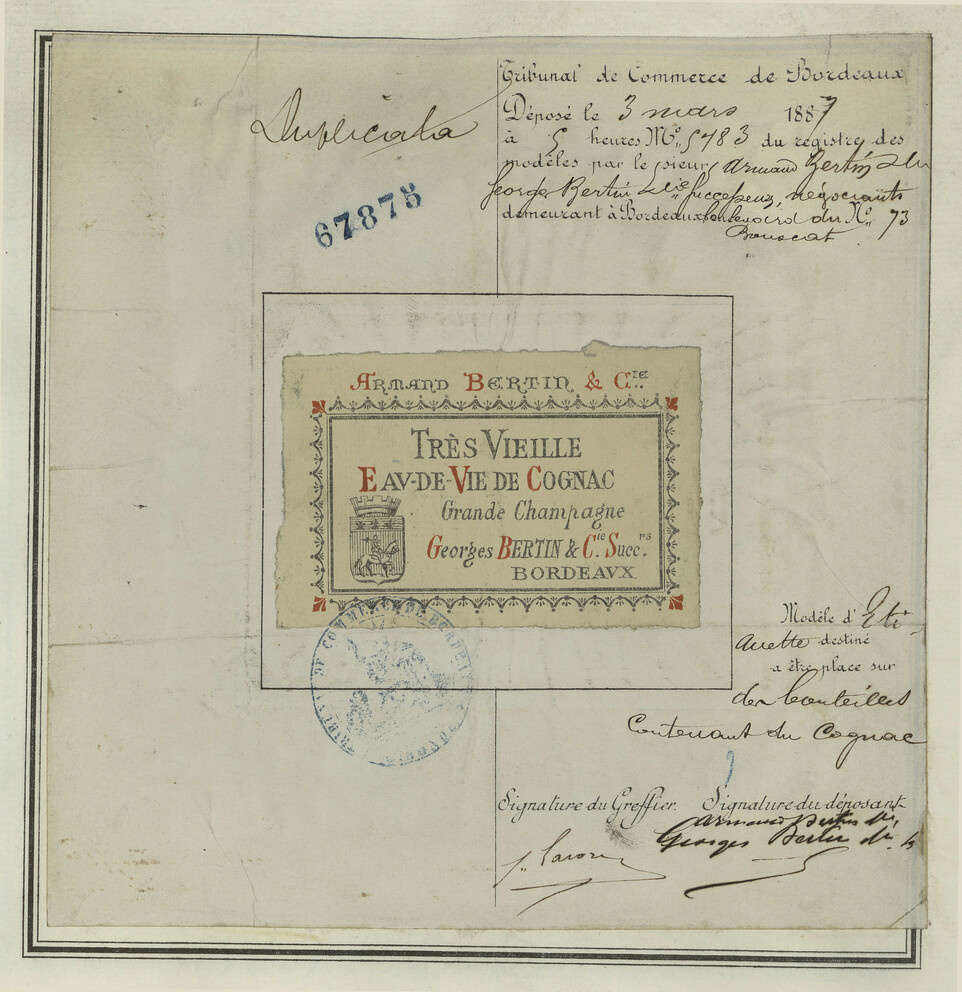 Duplicata
67875
Tribunal de Commerce de Bordeaux
Déposé le 3 mars 1887
à 5 heures No. 5783 du registre des
modèles par le sieur Armand Bertin &
Georges Bertin & Cie Successeurs, négociants
demeurant à Bordeaux boulevard du No. 73
Bouscat
ARMAND BERTIN & CIE.
TRÈS VIEILLE
EAV-DE-VIE DE COGNAC
Grande Champagne
Georges BERTIN & Cie. Succ.rs
BORDEAVX
TRIBUNAL DE COMMERCE DE BORDEAUX
Modèle d'Eti-
quette destiné
a être place sur
des bouteilles
Contenant du Cognac
Signature du Greffier. Signature du déposant
Armand Bertin
Georges Bertin